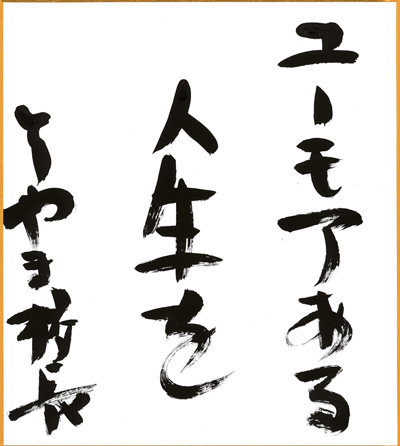 ユーモアある
人生を
とやま校長